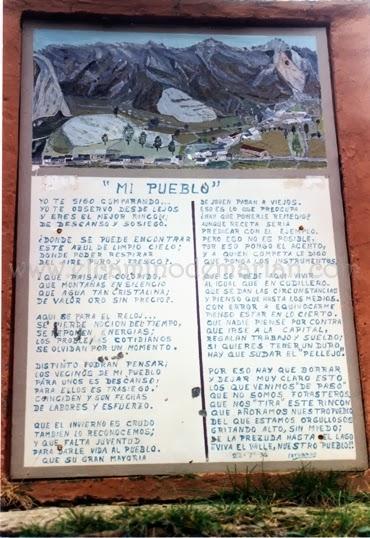 "MI PUEBLO"
YO TE SIGO COMPARANDO...
YO TE OBSERVO DESDE LEJOS
Y ERES EL MEJOR RINCON,
DE DESCANSO Y SOSIEGO.
¿DONDE SE PUEDE ENCONTRAR
ESTE AZUL DE LIMPIO CIELO;
DONDE PODER RESPIRAR
DEL AIRE PURO, Y FRESCO?
¡QUE PAISAJE COLORIDO,
QUE MONTAÑAS EN SILENCIO
QUE AGUA TAN CRISTALINA,
DE VALOR ORO SIN PRECIO?.
AQUI SE PARA EL RELOJ...
SE PIERDE NOCION DEL TIEMPO,
SE PONEN ENERGIAS;
LOS PROBLEMAS COTIDIANOS
SE OLVIDAN POR UN MOMENTO.
DISTINTO PODRAN PENSAR;
LOS VECINOS DE MI PUEBLO
PARA UNOS ES DESCANSO;
PARA ELLOS ES TRASIEGO.
COINCIDEN Y SON FECHAS
DE LABORES Y ESFUERZO.
QUE EL INVIERNO ES CRUDO
TAMBIEN LO RECONOCEMOS;
Y QUE FALTA JUVENTUD
PARA DARLE VIDA AL PUEBLO.
QUE SU GRAN MAYORIA
DE JOVEN PASAN A VIEJOS.
ESO ES LO QUE PREOCUPA
¡HAY QUE PONERLE REMEDIO!
AUNQUE RECETA SERIA
PREDICAR CON EL EJEMPLO.
PERO EGO NO ES POSIBLE,
POR ESO PONGO EL ACENTO,
Y A QUIEN COMPETA LE DIGO
QUE PONGA LOS INSTRUMENTOS.
AQUI DEBE LLEGAR
AL IGUAL QUE EN CUDILLERO.
QUE SE DAN LAS CIRCUNSTANCIAS
Y PIENSO QUE HASTA LOS MEDIOS.
CON ERROR A EQUIVOCARME
PIENSO ESTAR EN LO CIERTO.
QUE NADIE PIENSE POR CONTRA
QUE IRSE A LA CAPITAL,
REGALAN TRABAJO Y SUELDO;
SI QUIERES TENER UN DURO,
HAY QUE SUDAR EL "PELLEJO".
POR ESO HAY QUE BORRAR
Y DEJAR MUY CLARO ESTO,
LOS QUE VENIMOS "DE PASO"
QUE NO SOMOS FORASTEROS,
QUE NOS "TIRA" ESTE RINCON
QUE AÑORAMOS NUESTRO PUEBLO
DEL QUE ESTAMOS ORGULLOSOS
GRITANDO ALTO, SIN MIEDO
DE LA PREZUDA HASTA EL LAGO
¡VIVA EL VALLE, NUESTRO PUEBLO!!